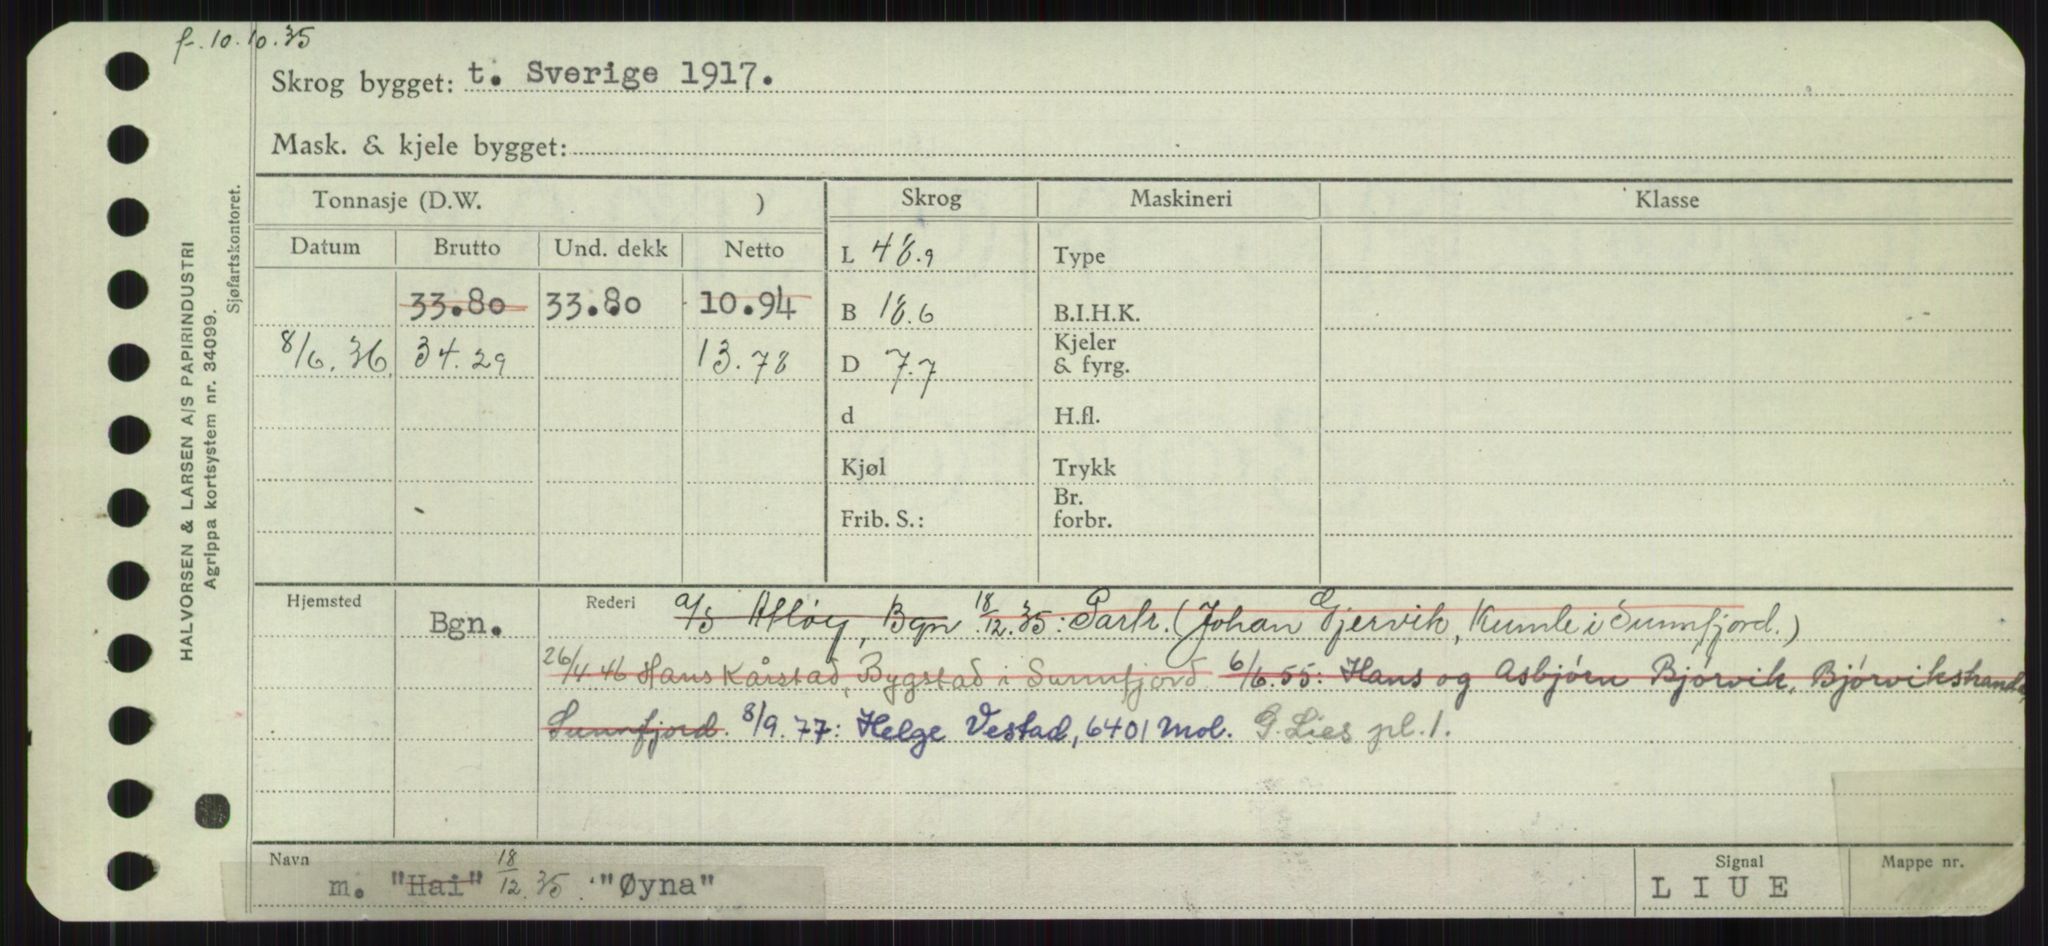 f. 10.10.35
Skrog bygget: t. Sverige 1917.
Mask. & kjele bygget:
HALVORSEN & LARSEN A/S PAPIRINDUSTRI
Agrippa kortsystem nr. 34099.
Sjøfartskontoret.
Tonnasje (D.W. ) Skrog Maskineri Klasse
Datum Brutto Und. dekk Netto
L 48.9 Type
33.80 33.80 10.94 B 18.6 B.I.H.K.
8/6.36 34.29 13.78 D 7.7 Kjeler & fyrg.
d H.fl.
Kjøl Trykk
Frib. S.: Br. forbr.
Hjemsted Bgn. Rederi a/s Atløy, Bgn 18/12.35: Partr. (Johan Gjervik, Kumle i Sunnfjord.)
26/4.46 Hans Kårstad, Bygstad i Sunnfjord 6/6.55: Hans og Asbjørn Bjørvik, Bjørvikstranda,
Sunnfjord. 8/9.77: Helge Vestad, 6401 Mol. G. Lies pl. 1.
Navn Signal Mappe nr.
m. "Hai" 18/12.35 "Øyna" LIUE